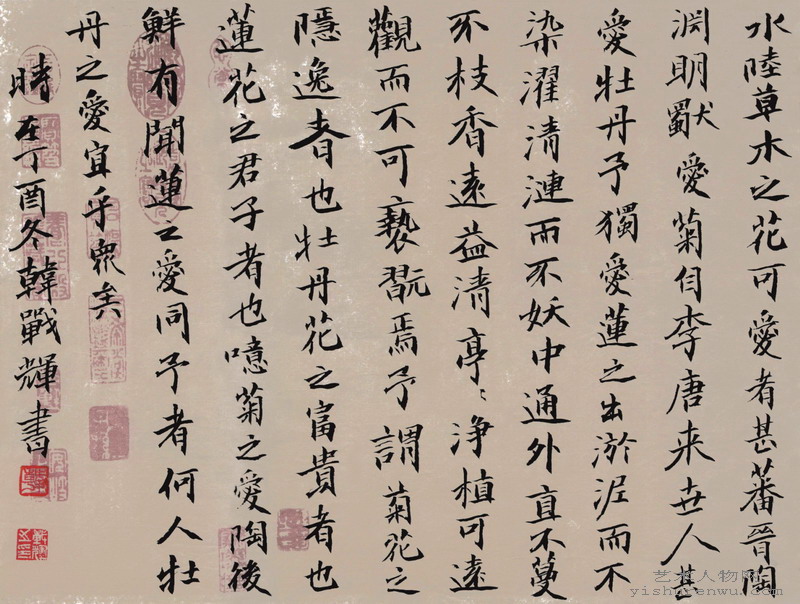 水陸草木之花可愛者甚蕃晉陶
淵明獨愛菊自李唐来世人甚
愛牡丹予獨愛蓮之出淤泥而不
染濯清漣而不妖中通外直不蔓
不枝香遠益清亭〻淨植可遠
觀而不可褻翫焉予謂菊花之
隱逸者也牡丹花之富貴者也
蓮花之君子者也噫菊之愛陶後
鮮有聞蓮之愛同予者何人牡
丹之愛宜乎衆矣
時在丁酉冬韓戰輝書
艺术人物网
yishurenwu.com